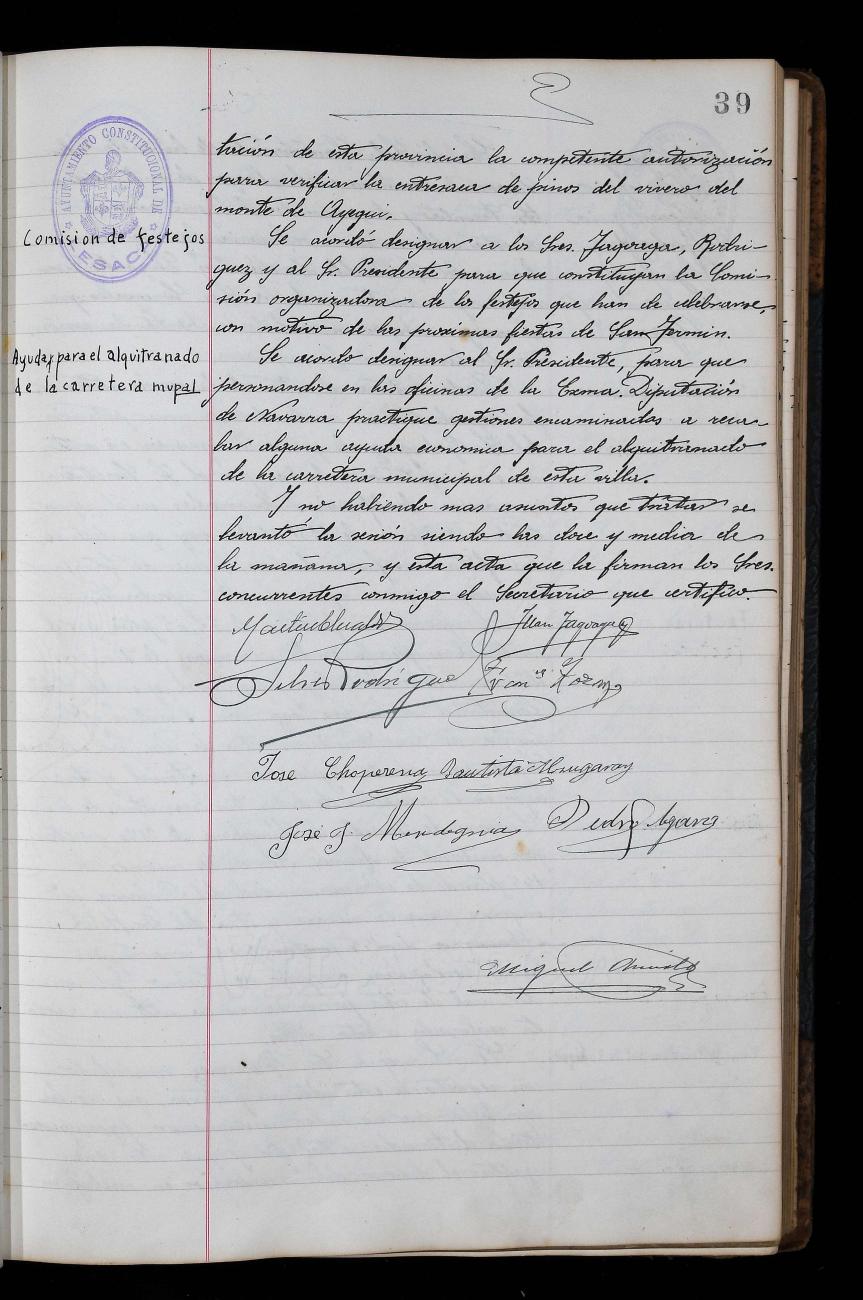 39
AYUNTAMIENTO CONSTITUCIONAL DE
LESACA
tación de esta provincia la competente autorización
para verificar la entresaca de pinos del vivero del
monte de Ayegui.
Comision de festejos
Se acordó designar a los Sres. Jagoaga, Rodri-
guez y al Sr. Presidente para que constituyan la Comi-
sión organizadora de los festejos que han de celebrarse,
con motivo de las proximas fiestas de San Fermin.
Ayuda para el alquitranado
de la carretera mupal
Se acordo designar al Sr. Presidente, para que
personandose en las oficinas de la Exma. Diputación
de Navarra practique gestiones encaminadas a reca-
bar alguna ayuda economica para el alquitranado
de la carretera municipal de esta villa.
Y no habiendo mas asuntos que tratar se
levantó la sesión siendo las doce y media de
la mañana, y esta acta que la firman los Sres.
concurrentes conmigo el Secretario que certifico.
Juan Jagoaga
Rodríguez
José Choperena Bautista
José J.
Pedro
Miguel